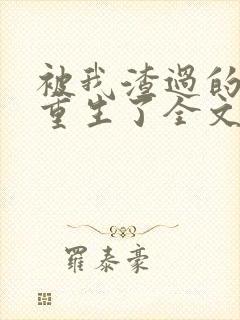 被我渣过的
重生了全文
羅泰豪